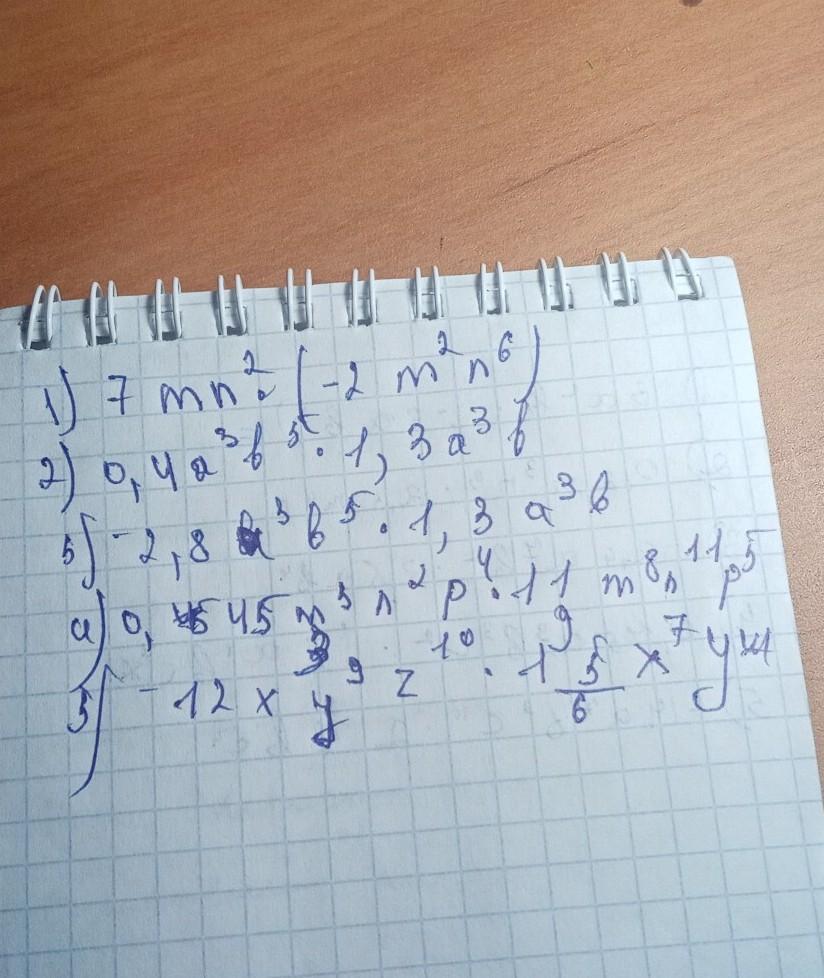 1) 7 mn² · (-2 m² n⁶)
2) 0,4a³b⁵ · 1,3a³b
5) -2,8 a³ b⁵ · 1,3 a³b
a) 0,45 m³ n² p⁴ · 11 m⁸n¹¹p⁵
5) -12 x y⁹ z¹⁰ · 1 5/6 x⁷ y